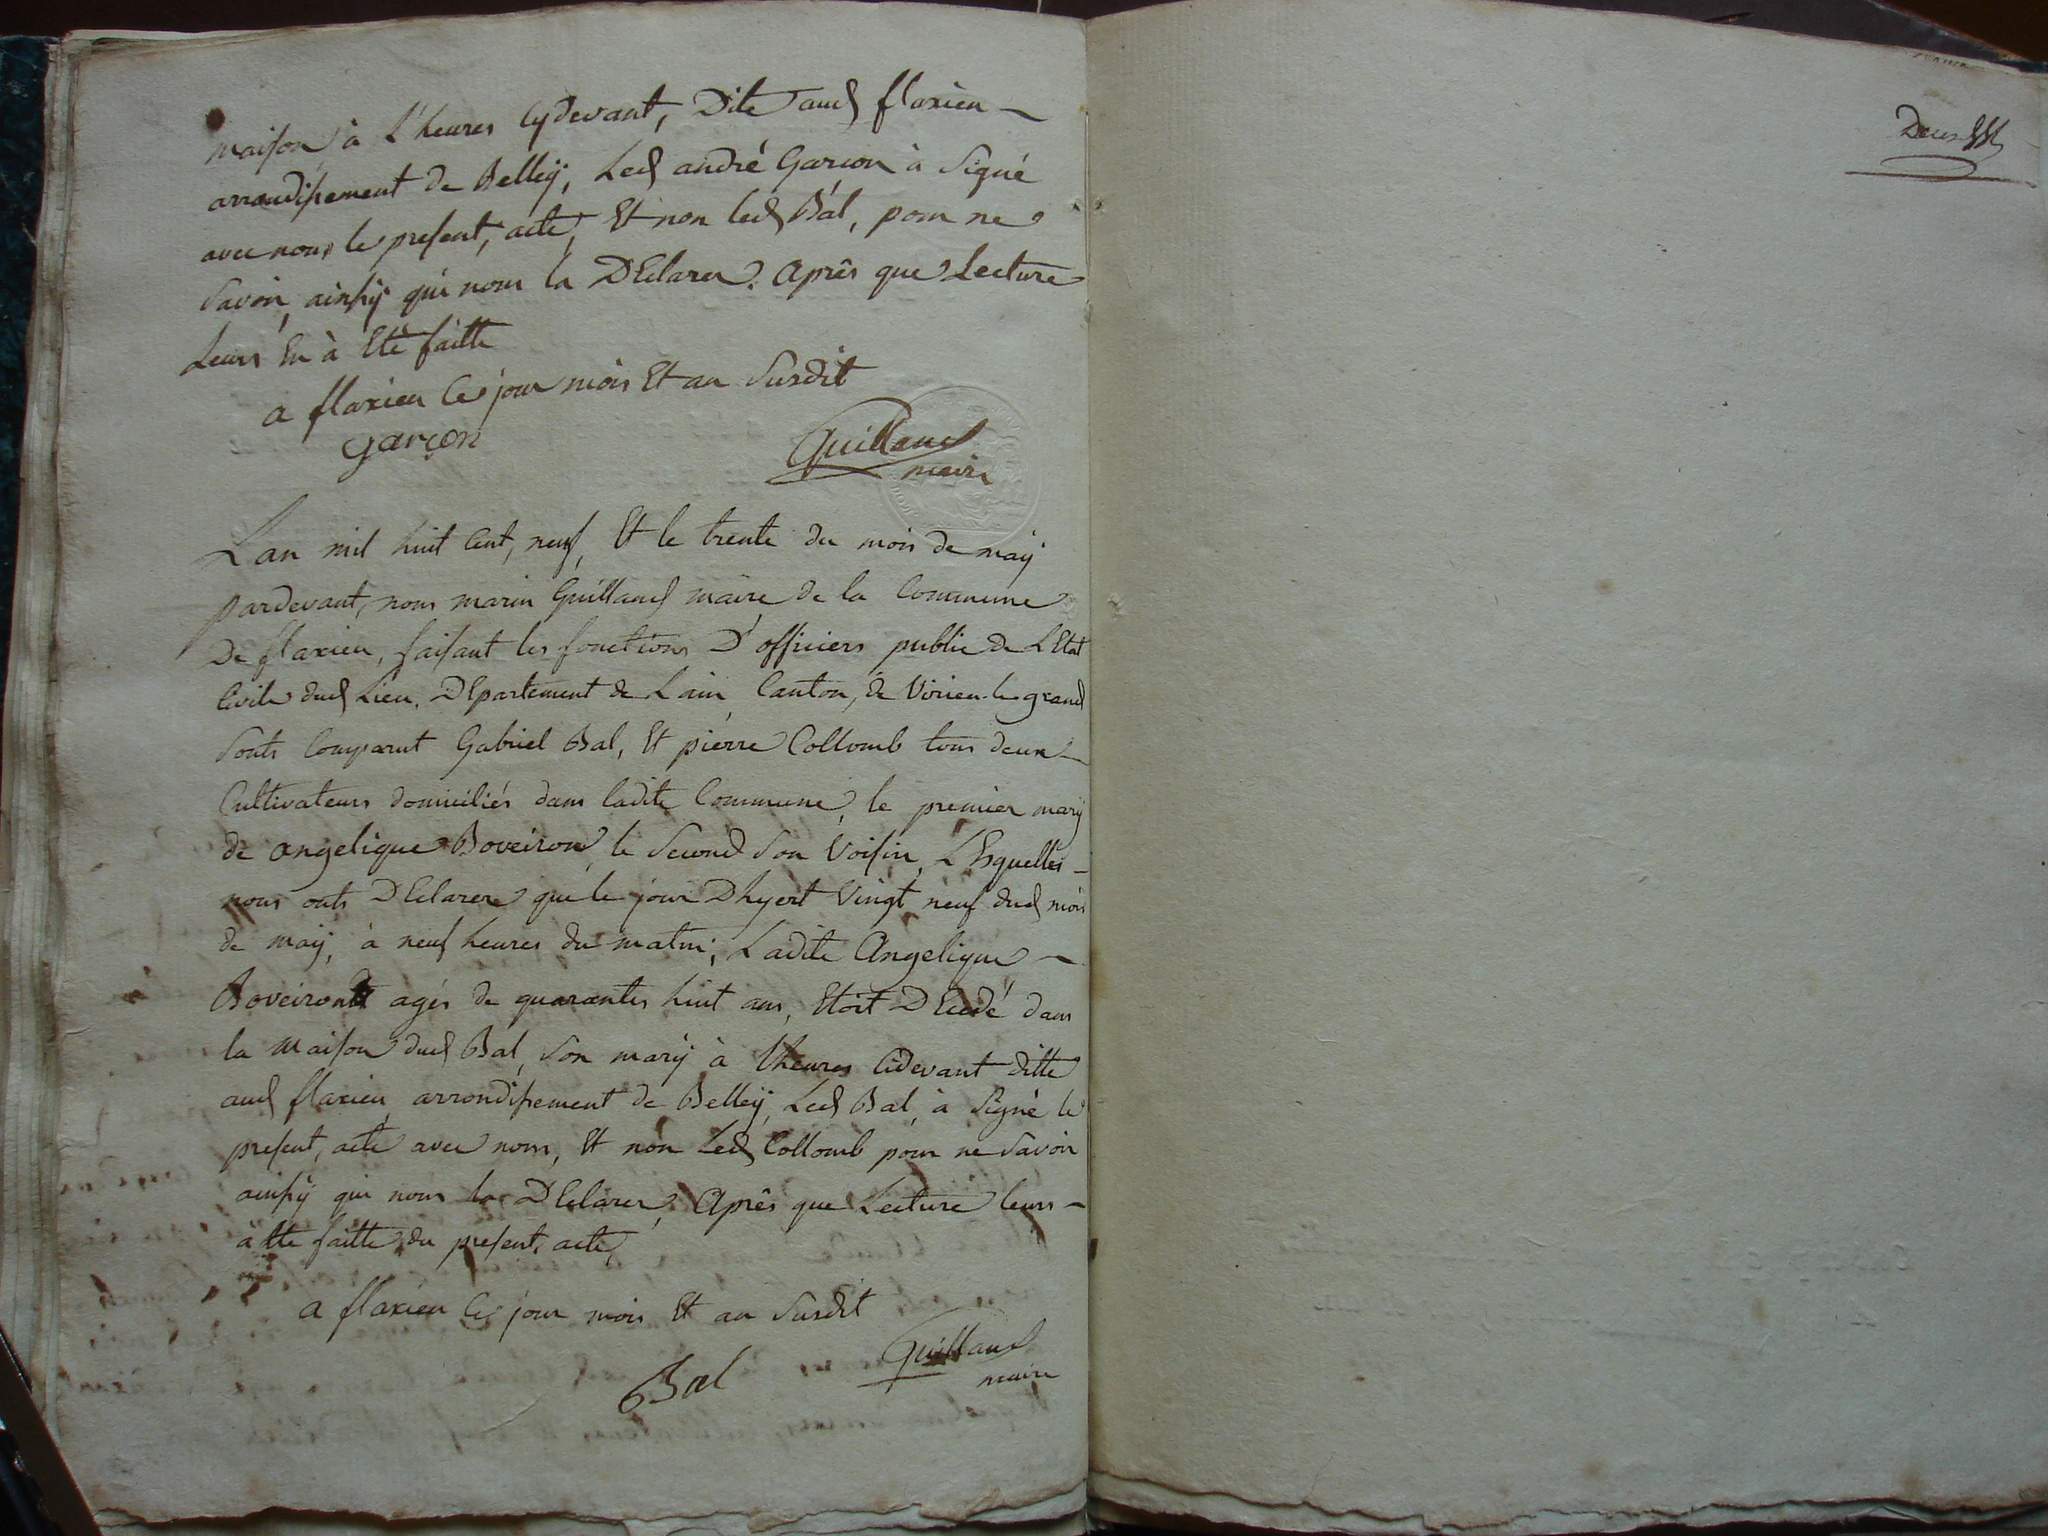 maison à L'heures Cydevant, Dite aud flaxieu
arrondissement de Belley, Led andré Garcon à Signé
avec nous le present, acte, Et non led Bal, pour ne
Savoir, ainsy qui nous la DEclarer. Après que Lecture
Leurs En à Eté faitte
a flaxieu Ce jour mois Et an Susdit
Garçon
Guilland
maire
Lan mil huit Cent, neuf, Et le trente du mois de maÿ
pardevant, nous marin Guilland maire de la Commune
De flaxieu, faisant les fonctions D'officiers public de LEtat
Civile dud Lieu, DEpartement de Lain, Canton, de Virieu le grand
Sonts Comparut Gabriel Bal, Et pierre Collomb tous deux
Cultivateurs domiciliés dans ladite Commune, le premier marÿ
de angelique Boveiron, le Second Son Voisin, LEsquelles
nous onts DEclarer que le jour Dhyert Vingt neuf dud mois
de maÿ, à neuf heures du matin, Ladite Angelique
Boveiront agés de quarantes huit ans, Etoit DEcedé dans
la maison dud Bal, Son marÿ à lheures Cidevant ditte
aud flaxieu, arrondissement de Belleÿ, Led Bal, à Signé le
present, acte avec nous, Et non Led Collomb pour ne Savoir
ainsÿ qui nous la DEclarer, Après que Lecture leurs
à Ete faitte du present, acte,
a flaxieu Ce jour mois Et an Susdit
Bal
Guilland
maire